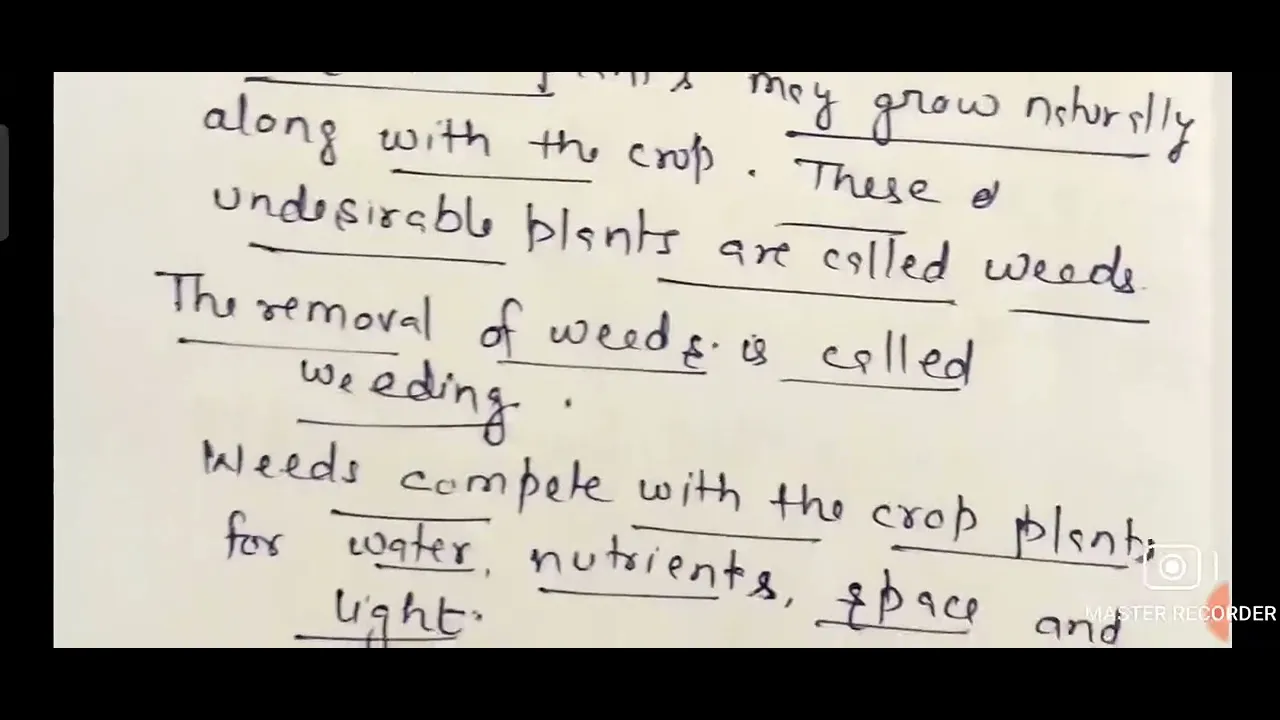 may grow naturally
along with the crop. These
undesirable plants are called weeds.
The removal of weeds. is called
weeding.
Weeds compete with the crop plants
for water, nutrients, space and
light.
MASTER RECORDER